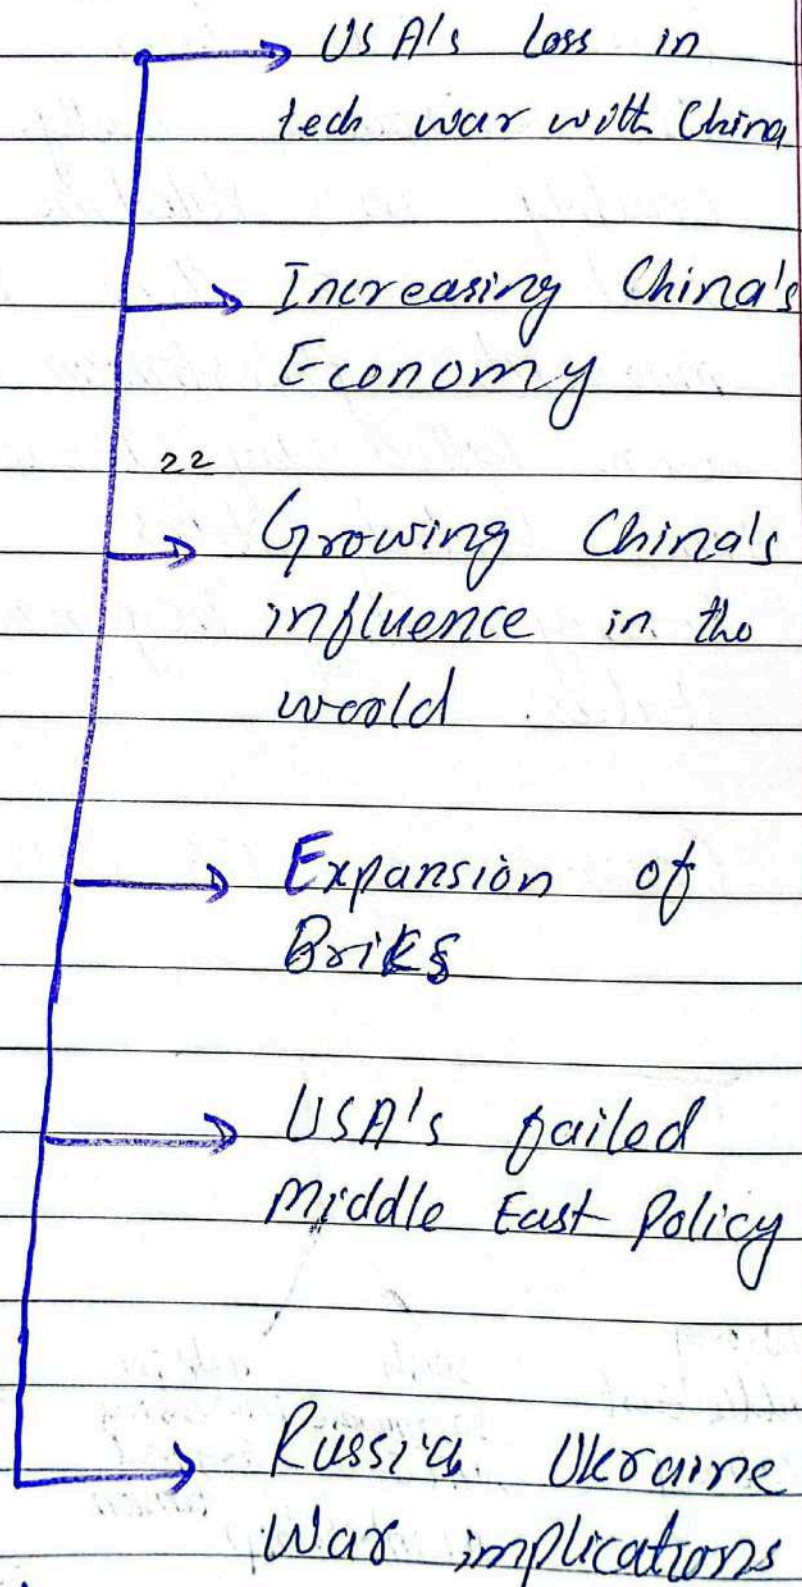 USA's loss in
tech war with China
Increasing China's
Economy
22
Growing China's
influence in the
world.
Expansion of
BriKs
USA's failed
Middle East Policy
Russia Ukraine
War implications